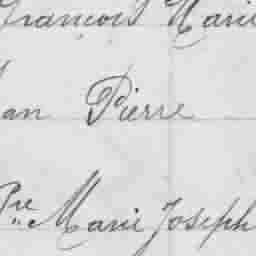 François Marie
an Pierre
Pre Marie Joseph